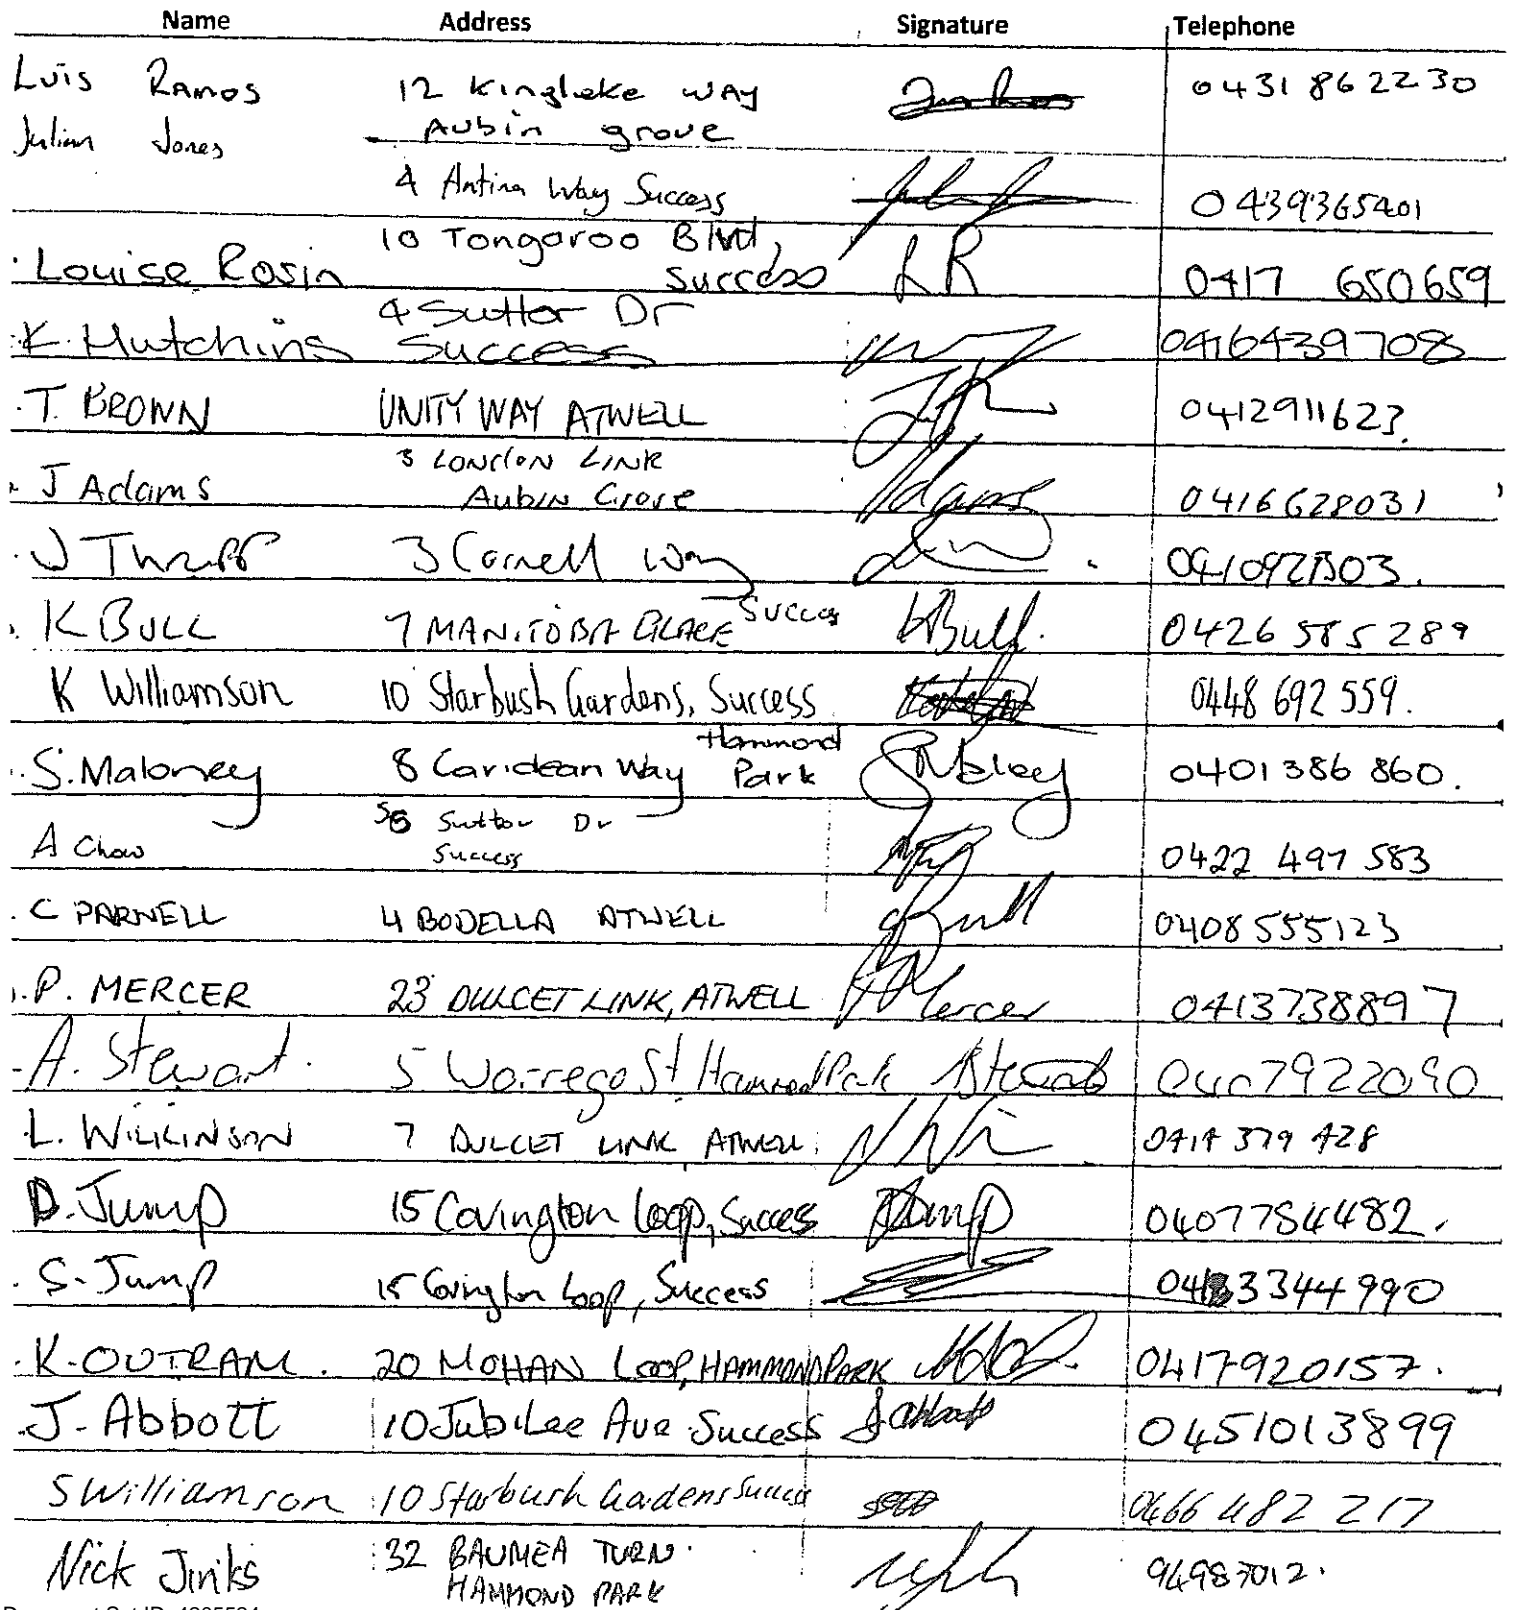 Name Address Signature Telephone
Luis Ramos 12 Kinglake Way 0431 862230
Aubin grove
Julian Jones
4 Antina Way Success 0439365401
10 Tongaroo Blvd,
Louise Rosin Success LR 0417 650659
4 Sutter Dr
K. Hutchins Success 0416439708
T. BROWN UNITY WAY ATWELL 0412911623.
3 LONDON LINK
J Adams AUBIN Grove Adams 0416628031
J 3 Cornell Way
Success
K BULL 7 MANITOBA PLACE KBull. 0426 585 289
K Williamson 10 Starbush Gardens, Success 0448 692 559.
Hammond
S. Maloney 8 Caridean Way Park 0401386 860.
Sutton Dr
A Chow Success 0422 497 583
C PARNELL 4 BODELLA ATWELL 0408555123
P. MERCER 23 DULCET LINK, ATWELL Mercer 0413738897
A. Stewart. 5 Warrego St Hammond Park 0407922090
L. WILKINSON 7 DULCET LINK ATWELL 0414 379 428
D. Jump 15 Covington Loop, Success Jump 0407784482.
S. Jump 15 Covington Loop, Success
K. OUTRAM. 20 MOHAN LOOP, HAMMOND PARK 0417920157.
J. Abbott 10 Jubilee Ave Success JAbbott 0451013899
S Williamson 10 Starbush Gardens Success 0466 482 217
Nick Jinks 32 BAUMEA TURN. 94987012.
HAMMOND PARK